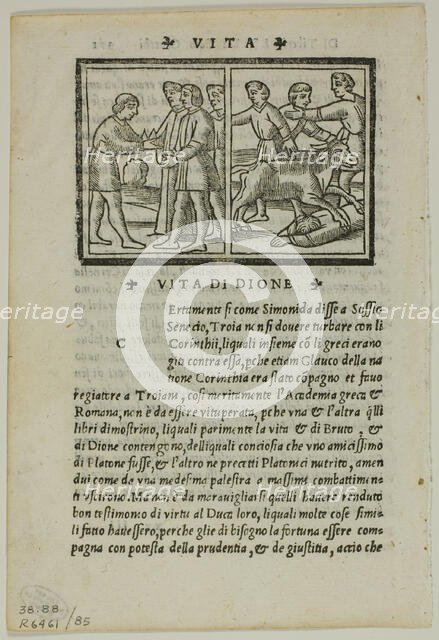 VITA
VITA DI DIONE
Ertamente si come Simonida disse a Sossio
Senecio, Troia non si dovere turbare con li
C Corinthii, liquali insieme cō li greci erano
gia contra essa, pche etiam Glauco della na
tione Corinthia era stato cōpagno et fauo
regiatore a Troiani, cosi meritamente l'Academia greca &
Romana, non è da essere vituperata, pche vna & l'altra
libri dimostrino, liquali parimente la vita & di Bruto, &
di Dione contengono, delliquali conciosia che vno amicissimo
di Platone fusse, & l'altro ne precetti Platonici nutrito, amen
dui come da vna medesma palestra a massimi combattimen
ti vscirono. Ma non è da marauigliarsi quelli hauere renduto
bon testimonio di virtu al Duca loro, liquali molte cose simi
li fatto hauessero, perche glie di bisogno la fortuna essere com
pagna con potesta della prudentia, & de giustitia, accio che
38.88
R6461 / 85
Heritage
Heritage
Heritage
Heritage
Heritage
Heritage